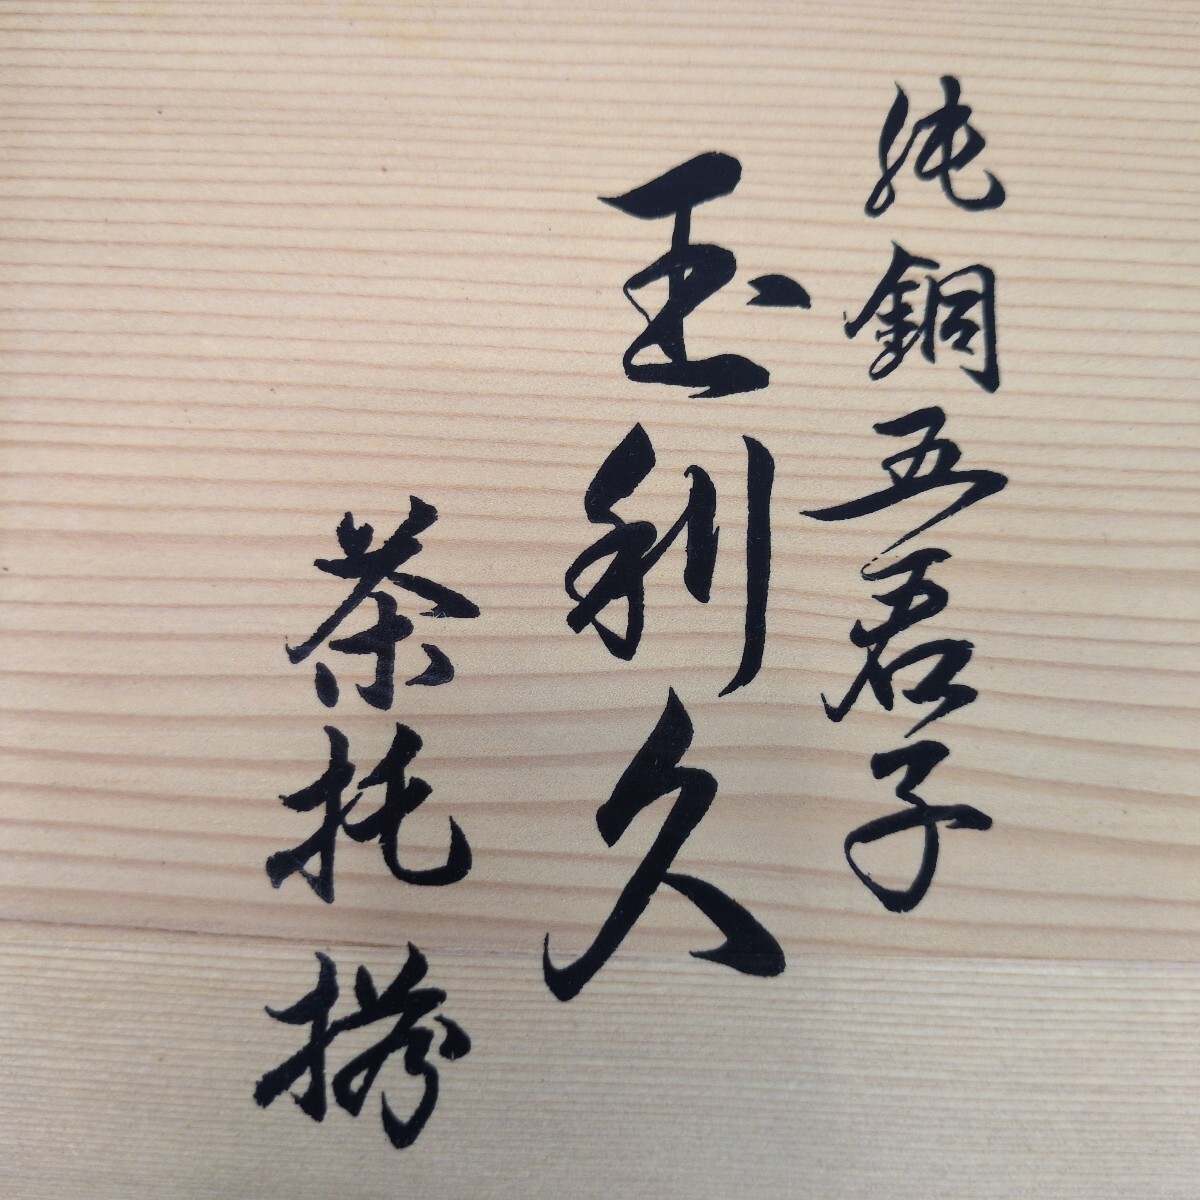 純銅五君子
玉利久
茶托揃